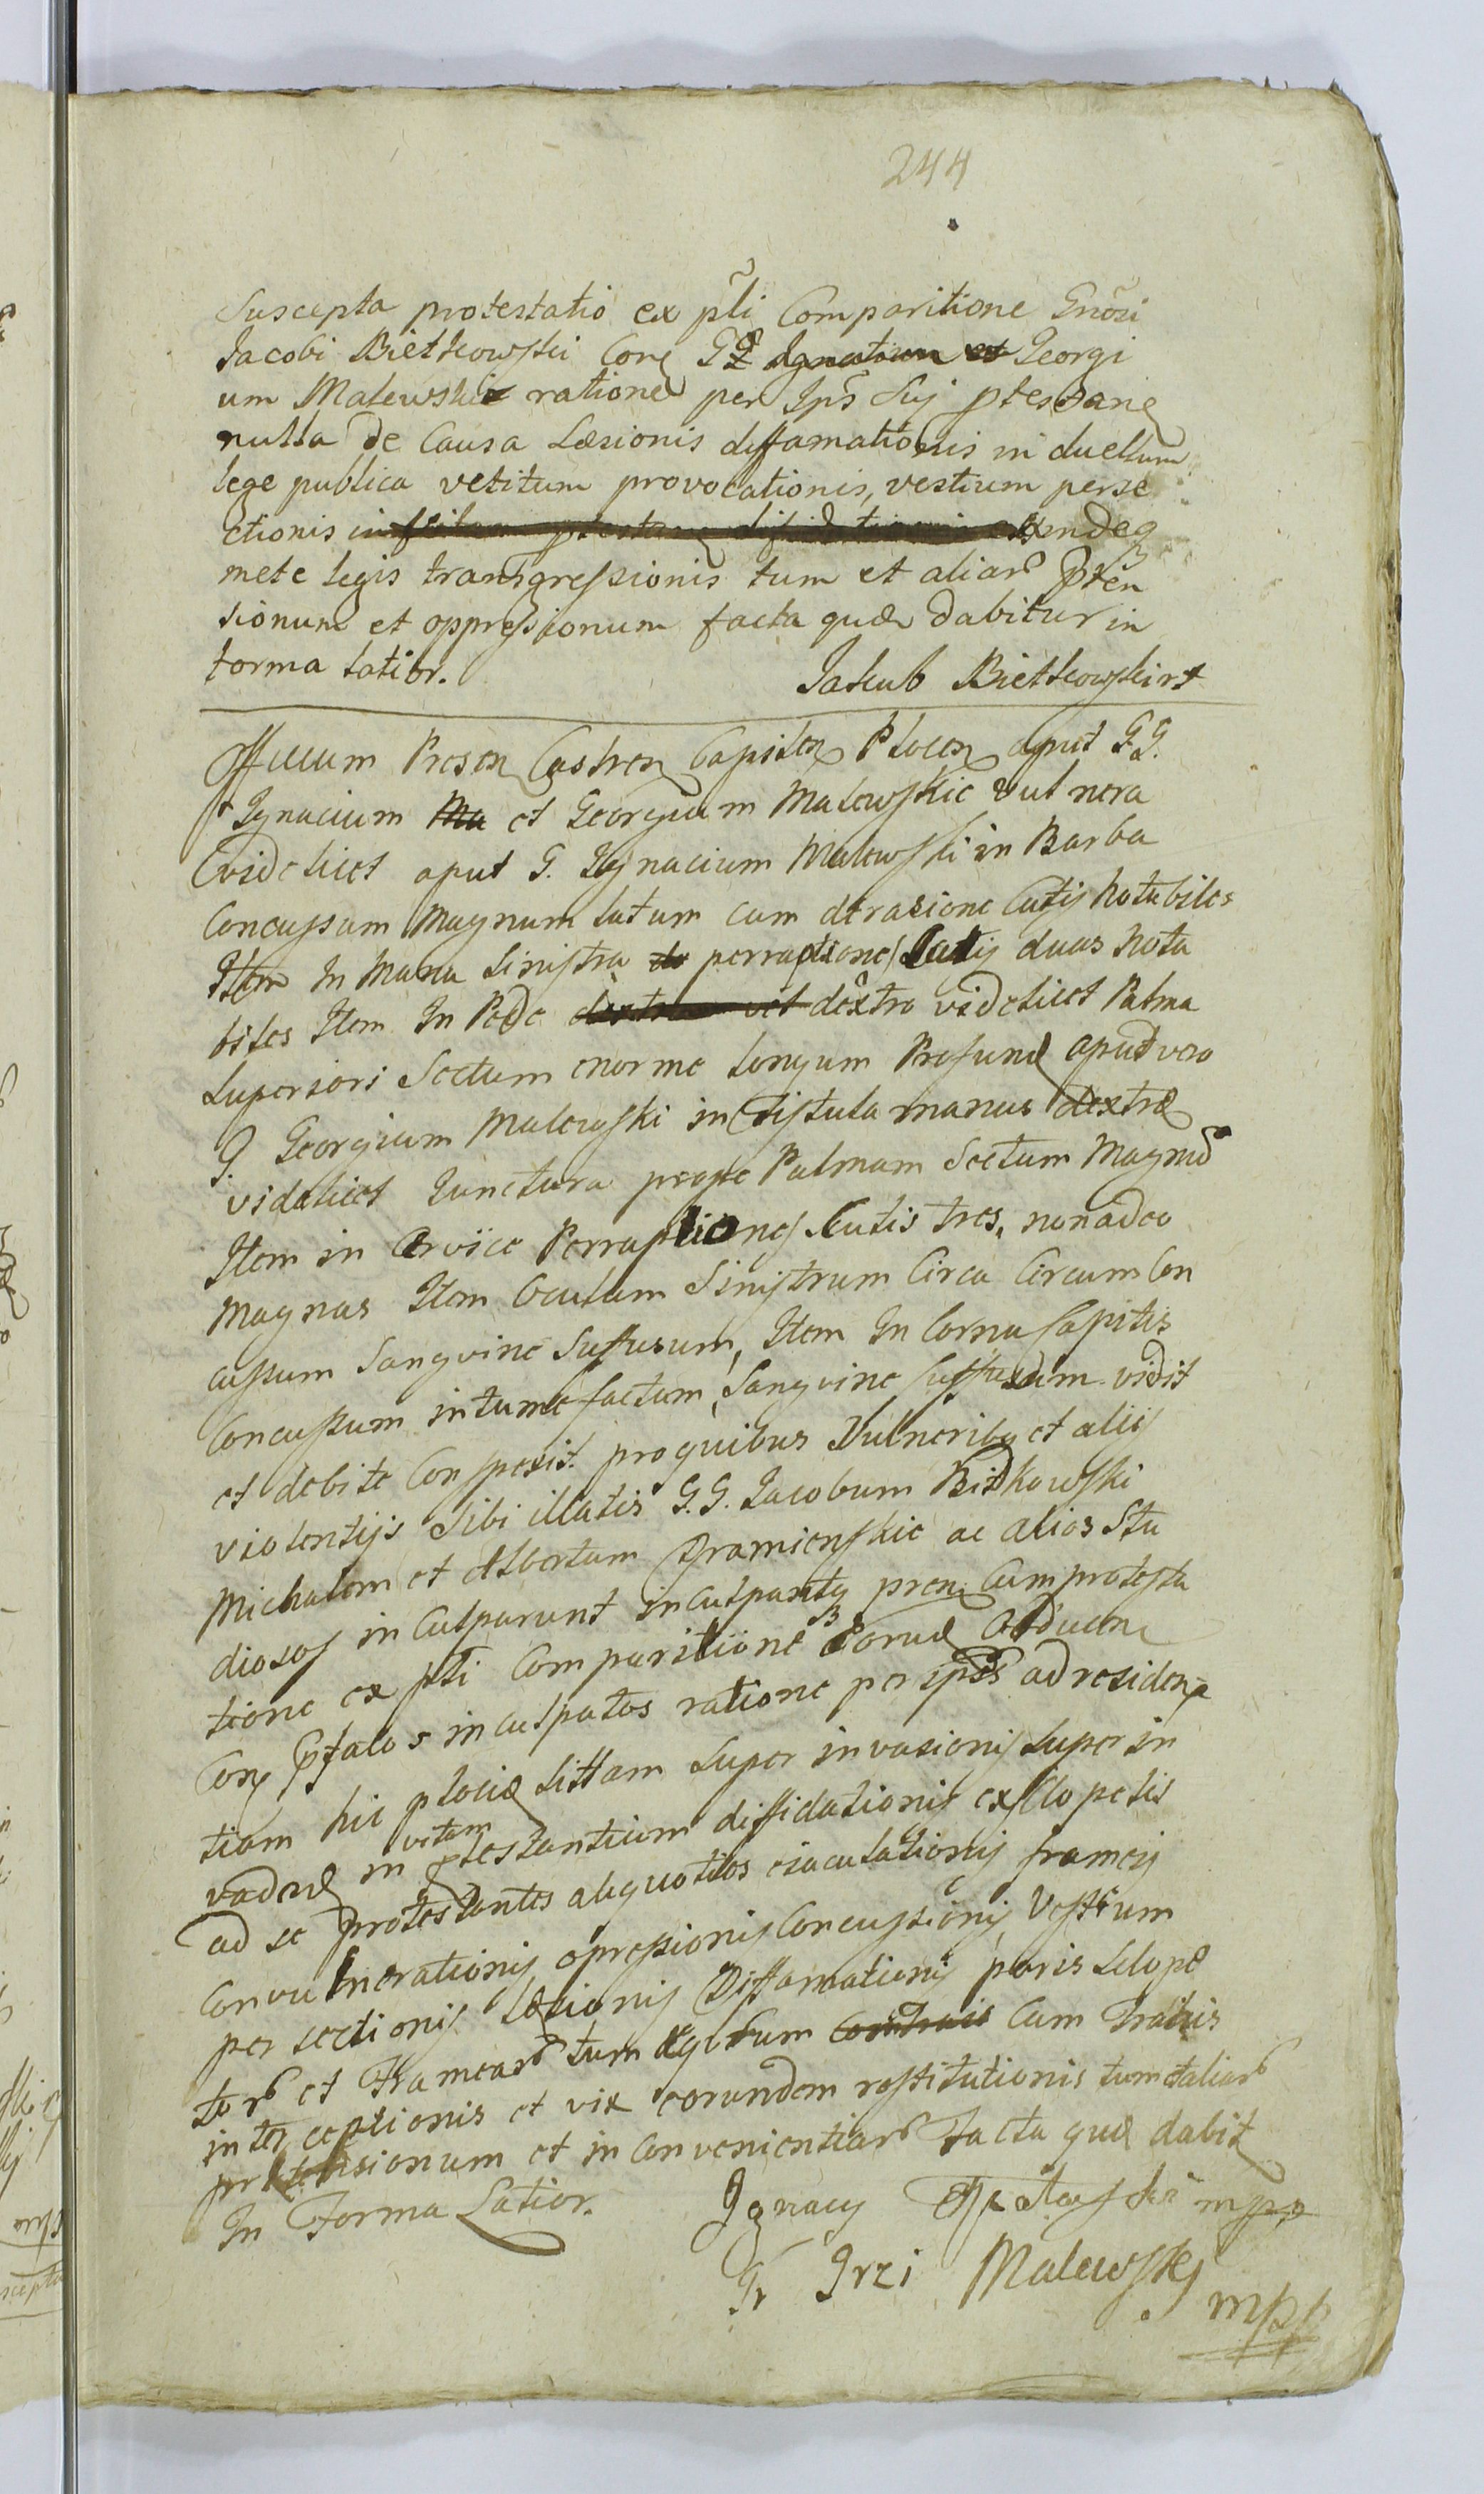 244
Suscepta protestatio ex pñti Comparitione Gnõsi
Jacobi Bietkowski Con GG Ignatium et Georgi
um Malewskie ratione per Ips Suj ptestane
nulla de Causa Læsionis diffamationis in duellum
lege publica vetitum provocationis, vestium perse
ctionis
mete legis transgressionis tum et aliar pten
sionum et oppressionum facta quæ dabitur in
forma latior.
Jakub Bietkowski
Officium Presen Castren Capiten Plocen aput G.G.
Ignacium Ma et Georgium Malewskie vulnera
videlicet aput G. Ignacium Malewski in Barba
Concussum Magnum latum cum derasione Cutis Notabiles
Item In Manu Sinistra perruptiones Cutis duas Nota
biles Item In Pede dextro videlicet Palma
Superiori Sectum enorme longum Profund aput vero
G. Georgium Malewski in Fistula manus dextræ
videlicet Iunctura prope Palmam Sectum Magnu
Item in Cervice Perruptiones Cutis tres, non adeo
Magnas Item Oculum Sinistrum Circa Circum Con
cussum Sangvine Suffusum, Item In Cornu Capitis
Concussum intumefactum, Sangvine Suffusum vidit
et debite Conspexit. pro quibus Vulneribus et aliis
violentijs Sibi illatis G.G. Jacobum Bitkowski
Michalem et Albertum Gramienskie ac alios Stu
diosos inculparunt inculpantq pren Cum protesta
tione ex pñti Comparitione Eorund Adducen
Con Pfatos inculpatos ratione per ipsos ad residen
tiam hic Plociæ Sittam Super invasionis Super in
vadend in vitam ptestantium diffidationis ex Sclopetis
ad se protestantes aliquoties eiaculationis frameis
Convulnerationis opressionis Concussionis Vestium
persectionis Læsionis Diffamationis paris Sclope
tor et Framear tum eqvum Contrais Cum
interceptionis et vix eorundem restitutionis tum et aliar
prætensionum et in convenientiar Facta quæ dabit
In Forma Latior.
Ignacy mpp
Jrzi Malewsky
mpp